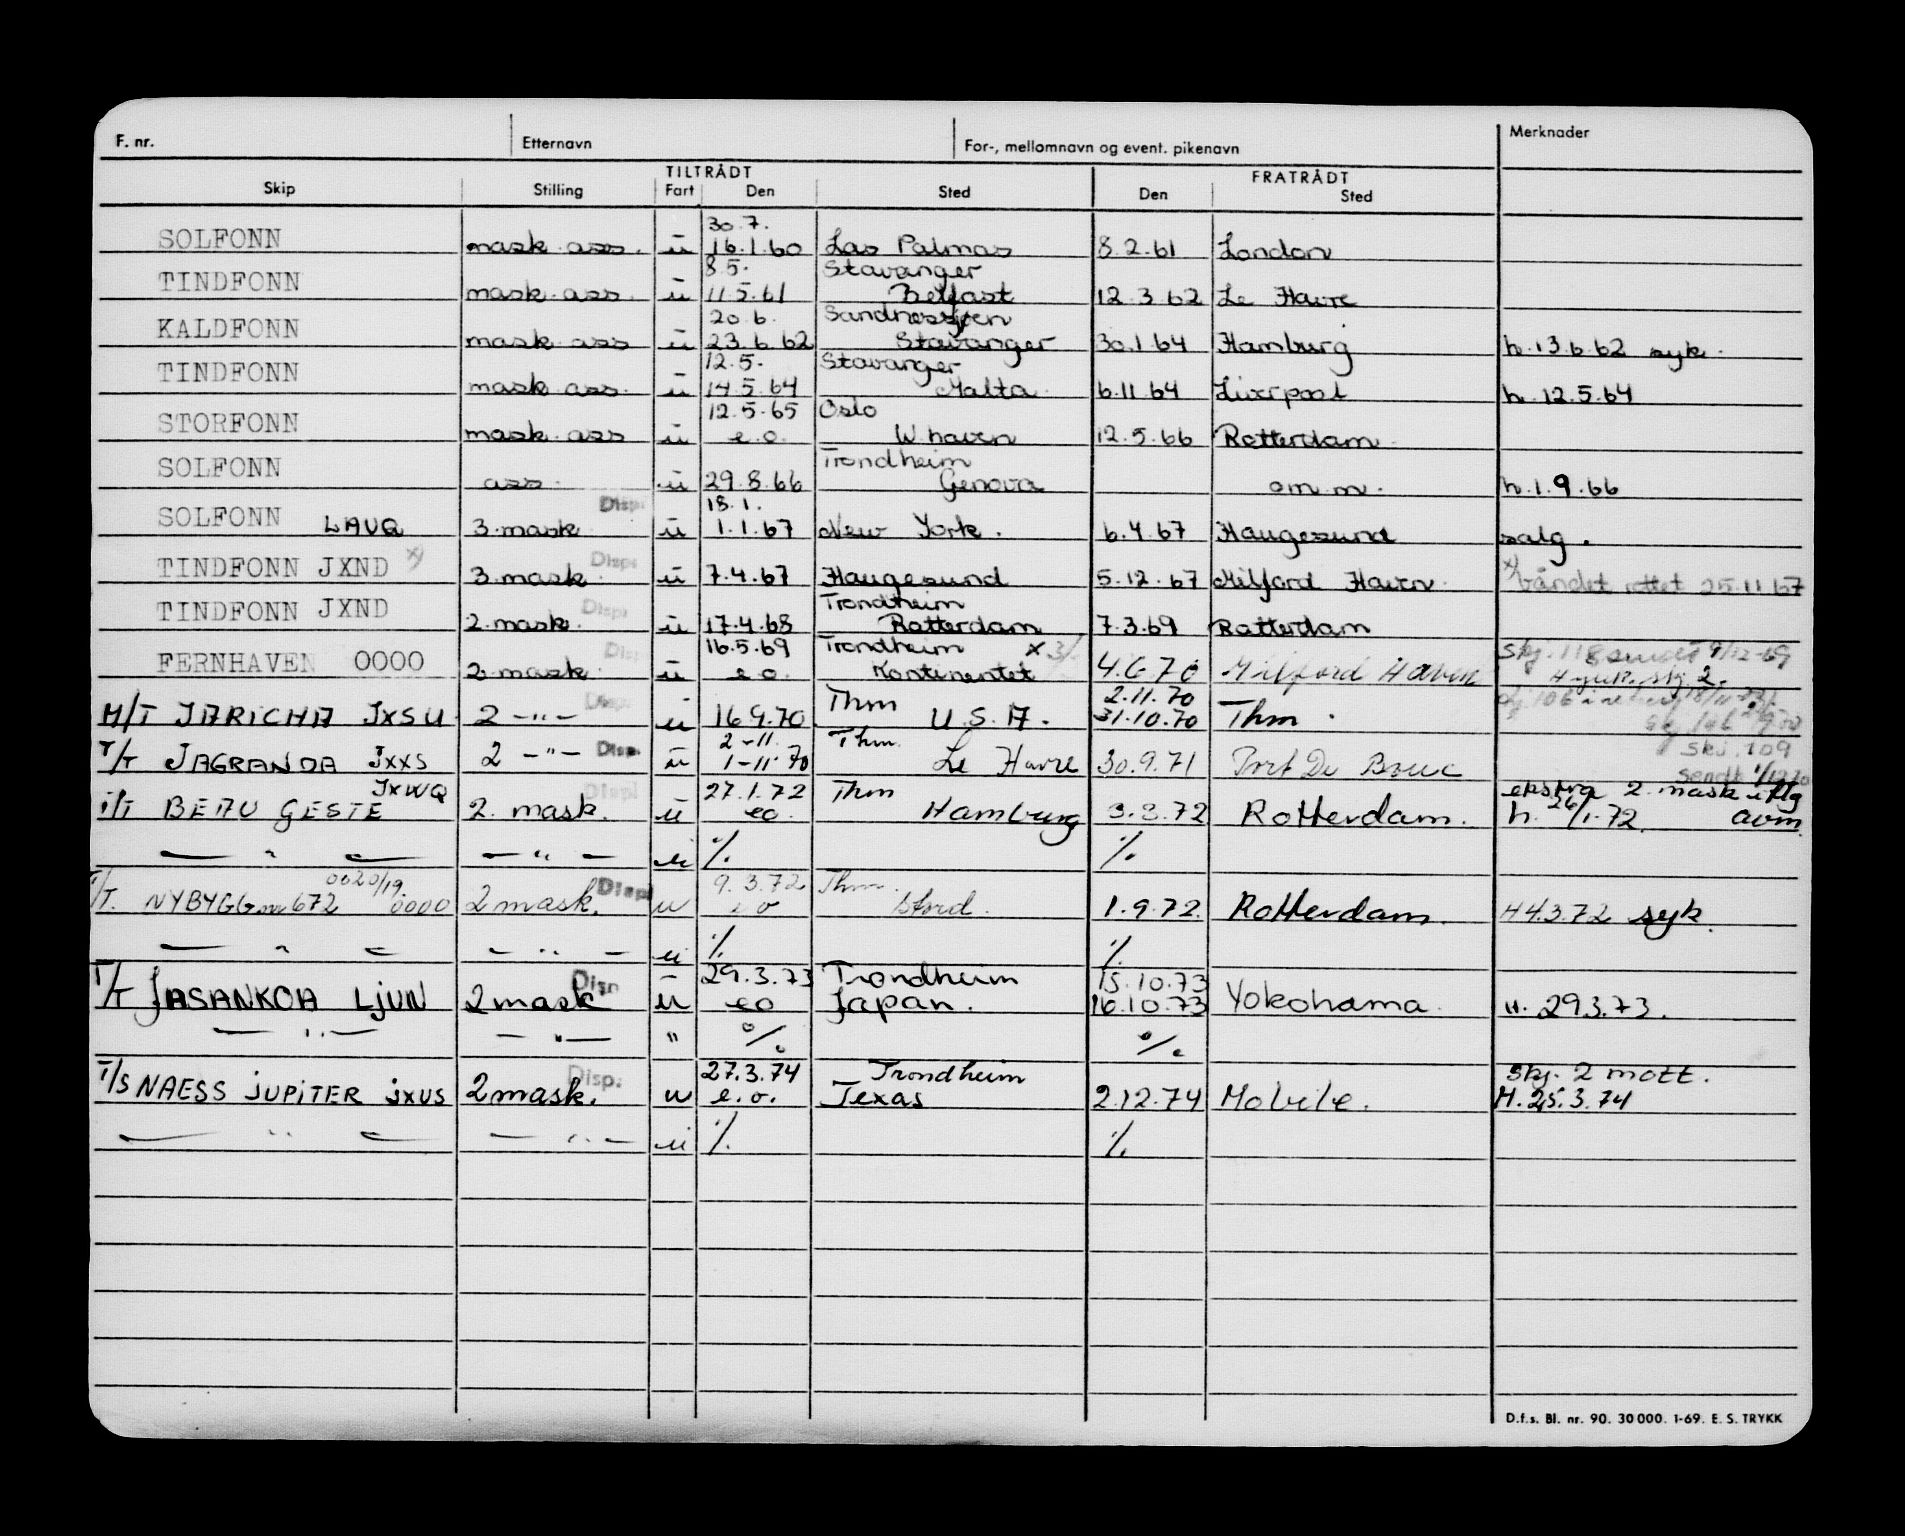 F. nr. Etternavn For-, mellomnavn og event. pikenavn Merknader
TILTRÅDT FRATRÅDT
Skip Stilling Fart Den Sted Den Sted
30.7.
SOLFONN mask.ass. u 16.1.60 Las Palmas 8.2.61 London
8.5. Stavanger
TINDFONN mask.ass. u 11.5.61 Belfast 12.3.62 Le Havre
20.6. Sandnessjøen
KALDFONN mask.ass u 23.6.62 Stavanger 30.1.64 Hamburg h.13.6.62 syk.
12.5. Stavanger
TINDFONN mask.ass. u 14.5.64 Malta 6.11.64 Liverpool h.12.5.64
12.5.65 Oslo
STORFONN mask.ass u e.o. W.haven 12.5.66 Rotterdam
Trondheim
SOLFONN ass. u 29.8.66 Genova om.m. h.1.9.66
Disp. 18.1.
SOLFONN LAUQ 3.mask u 1.1.67 New York. 6.4.67 Haugesund salg.
Disp.
TINDFONN JXND x) 3.mask. u 7.4.67 Haugesund 5.12.67 Milford Haven x) båndet rettet 25.11.67
Disp. Trondheim
TINDFONN JXND 2.mask. u 17.4.68 Rotterdam 7.3.69 Rotterdam
Disp. 16.5.69 Trondheim x 3/. Skj. 118 sendt 9/12-69
FERNHAVEN 0000 2.mask. u e.o. Kontinentet 4.6.70 Milford Haven
Disp. Thm 2.11.70
M/T JARICHA JXSU 2 -"- u 16.9.70 U.S.A. 31.10.70 Thm.
2-11. Thm. Skj. 109
T/T JAGRANDA JXXS 2 -"- Disp. u 1-11.70 Le Havre 30.9.71 Port De Bouc sendt 1/12.70
JXWQ Disp. 27.1.72 Thm ekstra 2. mask iflg
T/T BEAU GESTE 2. mask. u eo. Hamburg 3.3.72 Rotterdam. h. 26/1.72. avm.
— " — — " — u ./. ./.
0020/19. Disp. 9.3.72 Thm.
T/T. NYBYGG nr 672 0000 2 mask. u e o Stord. 1.9.72. Rotterdam. H 4.3.72 syk.
— " — — " — u ./. ./.
Disp. 29.3.73 Trondheim 15.10.73
T/T JASANKOA LJUN 2 mask u eo Japan. 16.10.73 Yokohama. H. 29.3.73.
— " — — " — " ./. ./.
Disp. 27.3.74 Trondheim Skj. 2 mott.
T/S NAESS JUPITER JXUS 2 mask. u e.o. Texas 2.12.74 Mobile. H. 25.3.74
— " — — " — u ./. ./.
D.f.s. Bl. nr. 90. 30 000. 1-69. E. S. TRYKK